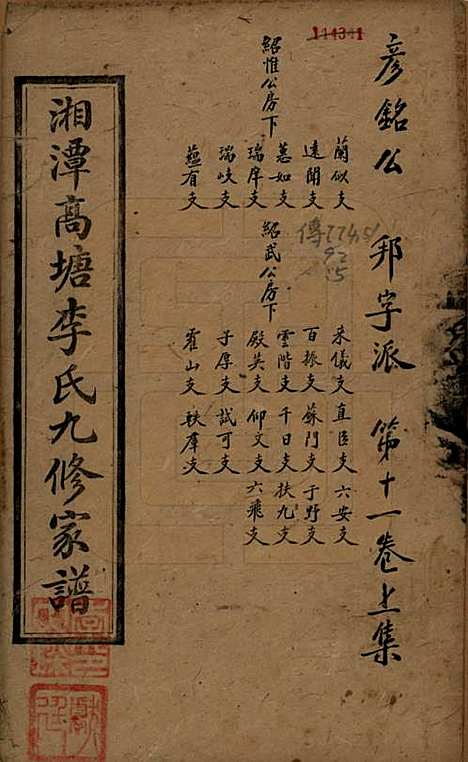 114341
彥銘公 邦字派 第十一卷上集
蘭似支
遠聞支
蕙如支
瑞岸支
瑞岐支
蘊有支
紹惟公房下
采儀支 直臣支 六安支
百振支 蘇門支 于野支
雲階支 千日支 扶九支
殿英支 仰文支 六飛支
子厚支 試可支
霍山支 軼羣支
紹武公房下
傳
湘潭高塘李氏九修家譜